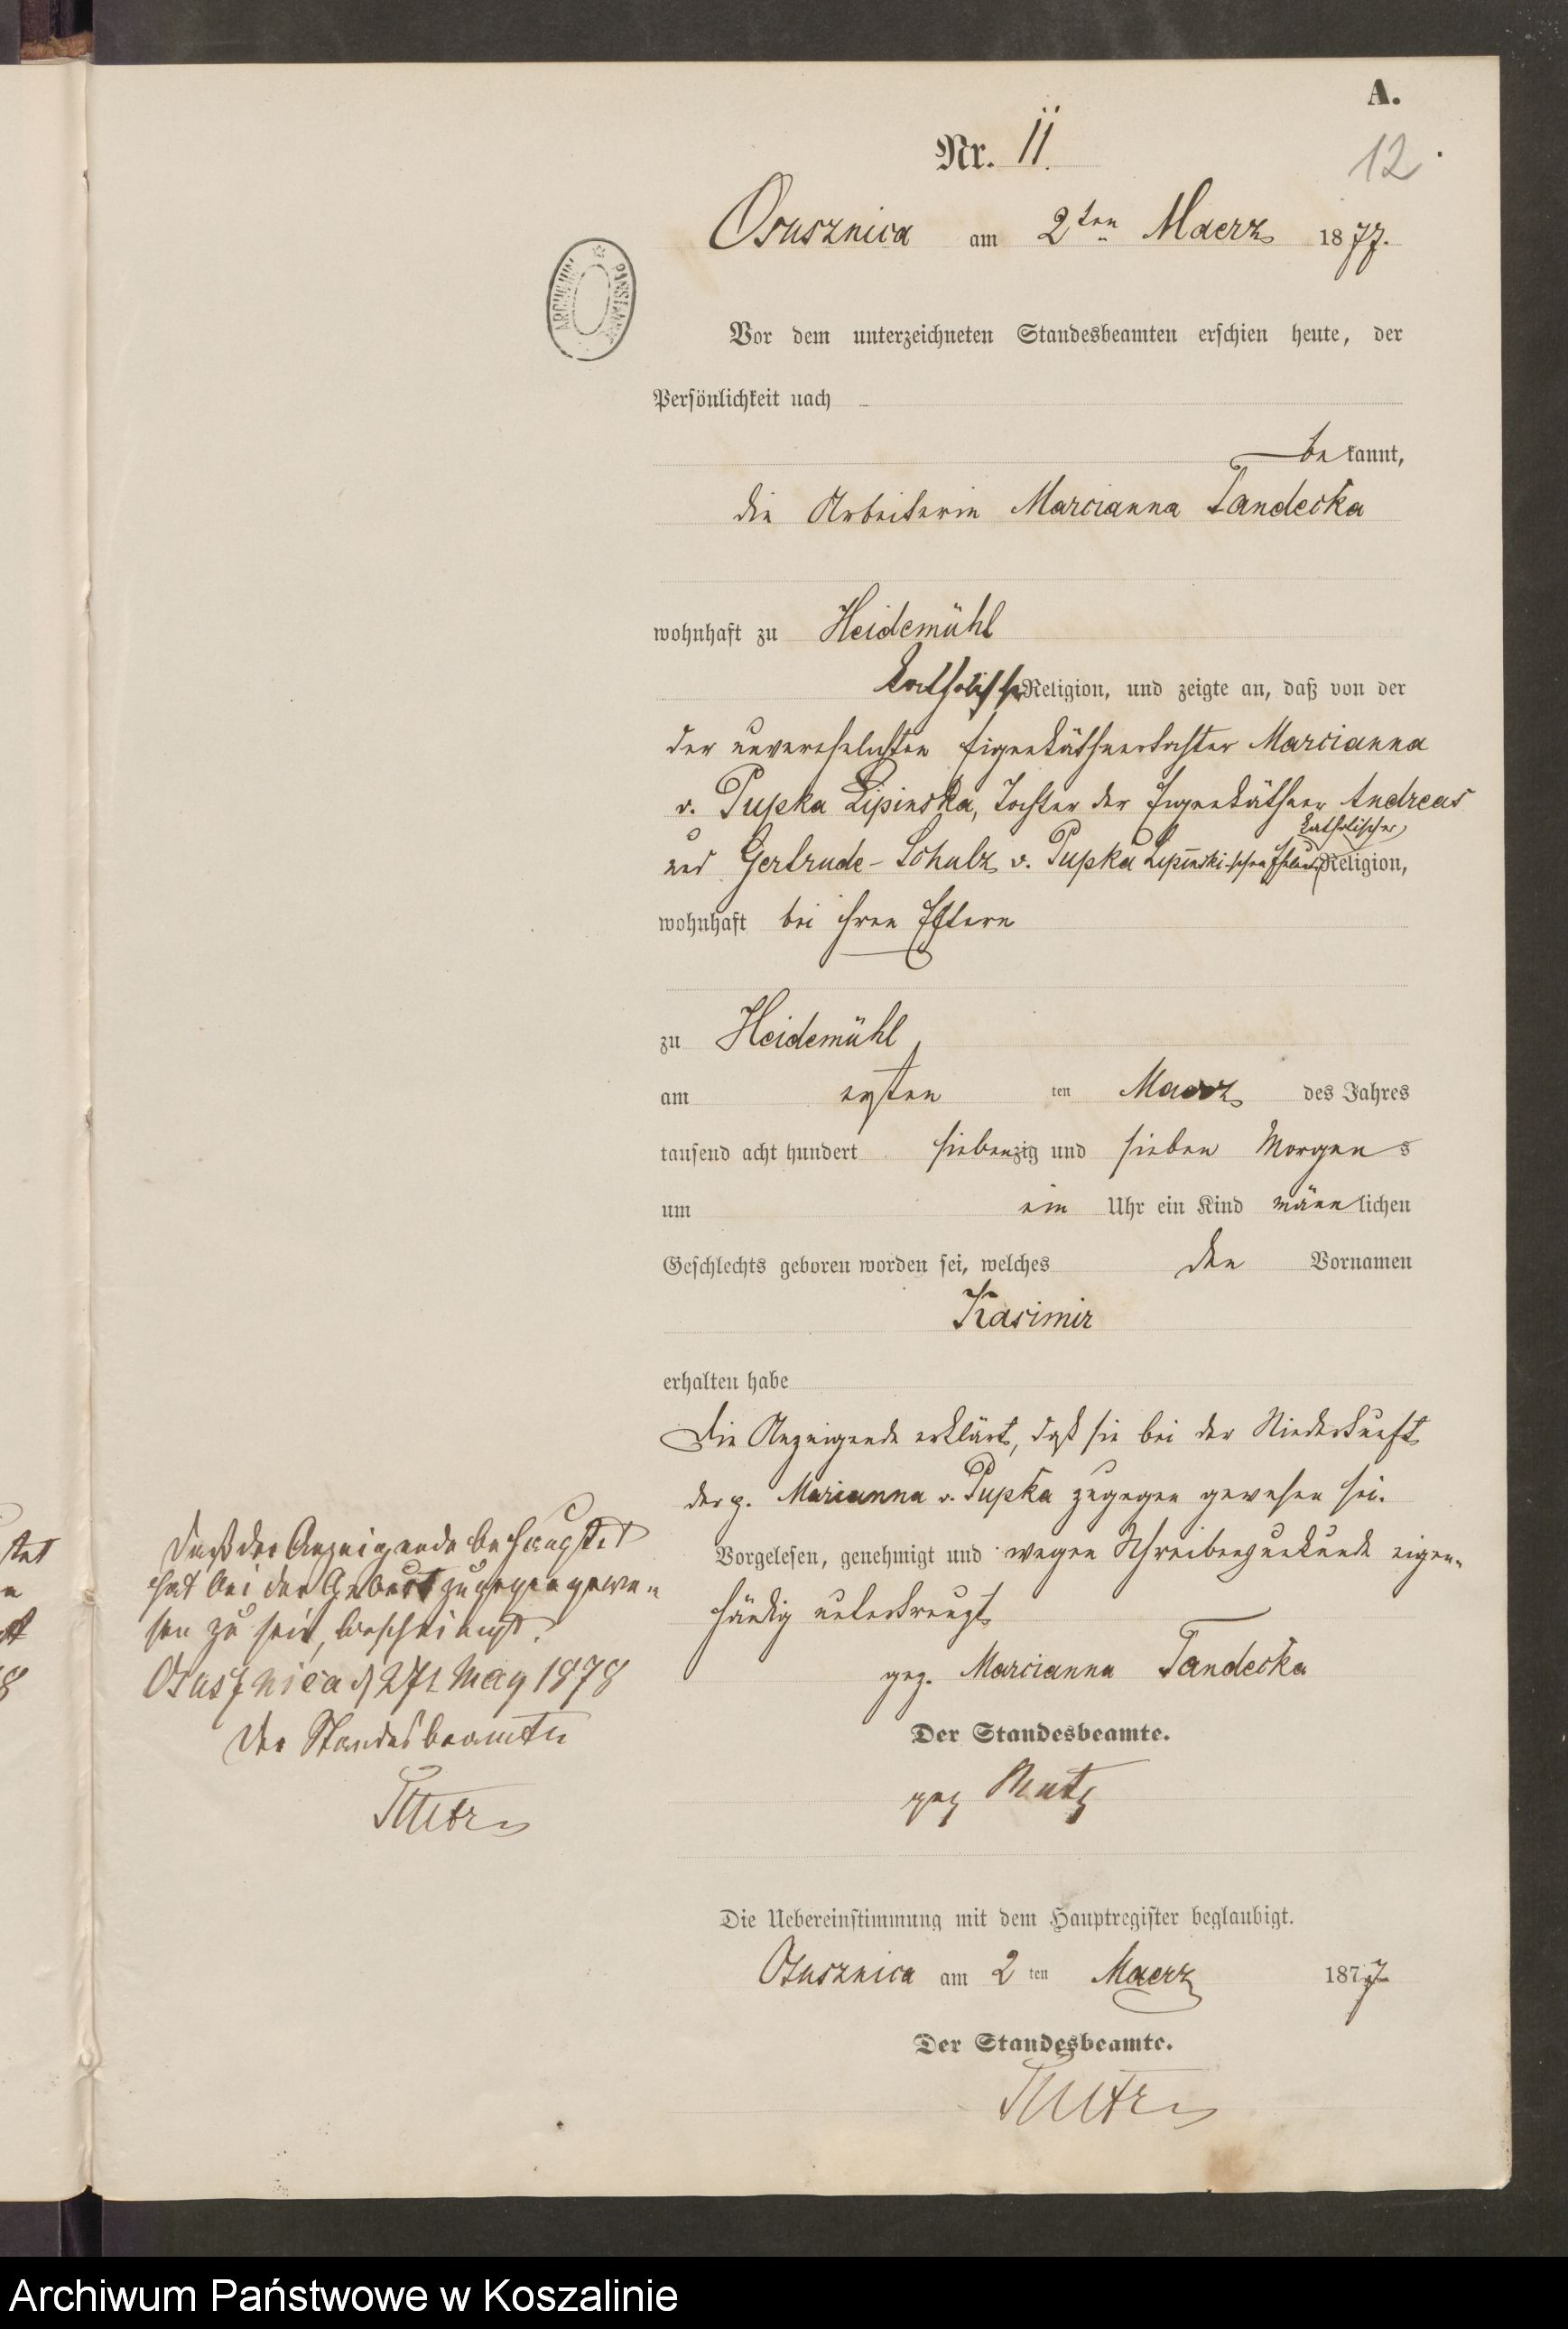 A.
Nr. 11.
12.
Osusznica am 2ten Maerz 1877.
ARCHIWUM PAŃSTWOWE
Vor dem unterzeichneten Standesbeamten erschien heute, der
Persönlichkeit nach
bekannt,
die Arbeiterin Marcianna Tandecka
wohnhaft zu Heidemühl
katholischer Religion, und zeigte an, daß von der
der unverehelichten Eigenkäthnertochter Marcianna
v. Pupka Lipinska, Tochter der Eigenkäthner Andreas
und Gertrude - Schulz v. Pupka Lipinski-schen Eheleute
katholischer
Religion,
wohnhaft bei ihren Eltern
zu Heidemühl
am ersten ten Maerz des Jahres
tausend acht hundert siebenzig und sieben Morgens
um ein Uhr ein Kind männlichen
Geschlechts geboren worden sei, welches den Vornamen
Kasimir
erhalten habe
Die Anzeigende erklärt, daß sie bei der Niederkunft
der p. Marianna v. Pupka zugegen gewesen sei.
Vorgelesen, genehmigt und wegen Schreibensunkunde eigen-
händig unterkreuzt
gez. Marcianna Tandecka
Der Standesbeamte.
gez
Daß die Anzeigende behauptet
hat bei der Geburt zugegen gewe-
sen zu sein, bescheinigt.
Osusznica d 27t May 1878
Der Standesbeamte
Die Uebereinstimmung mit dem Hauptregister beglaubigt.
Osusznica am 2 ten Maerz 1877
Der Standesbeamte.
Archiwum Państwowe w Koszalinie